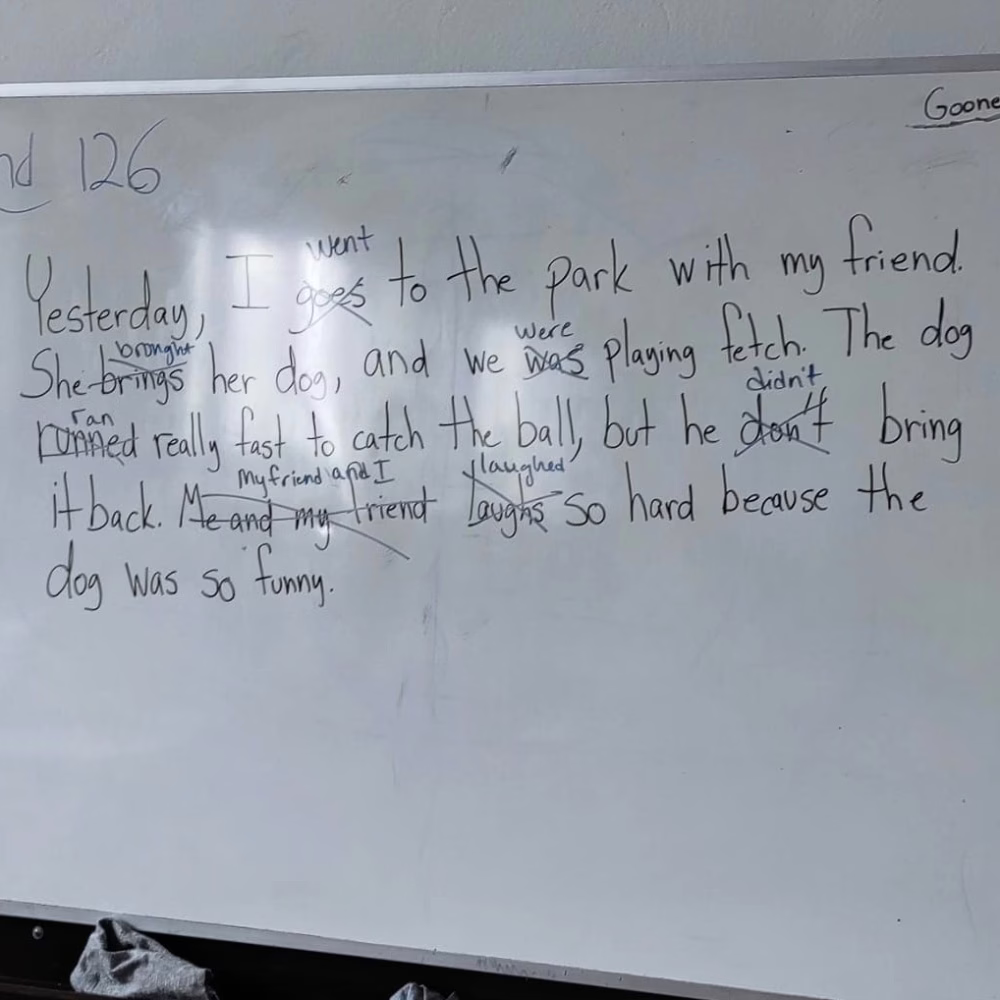 Goone
nd 126
went
Yesterday, I goes to the park with my friend.
brought were
She brings her dog, and we was playing fetch. The dog
ran didn't
runned really fast to catch the ball, but he don't bring
My friend and I laughed
it back. Me and my friend laughs so hard because the
dog was so funny.